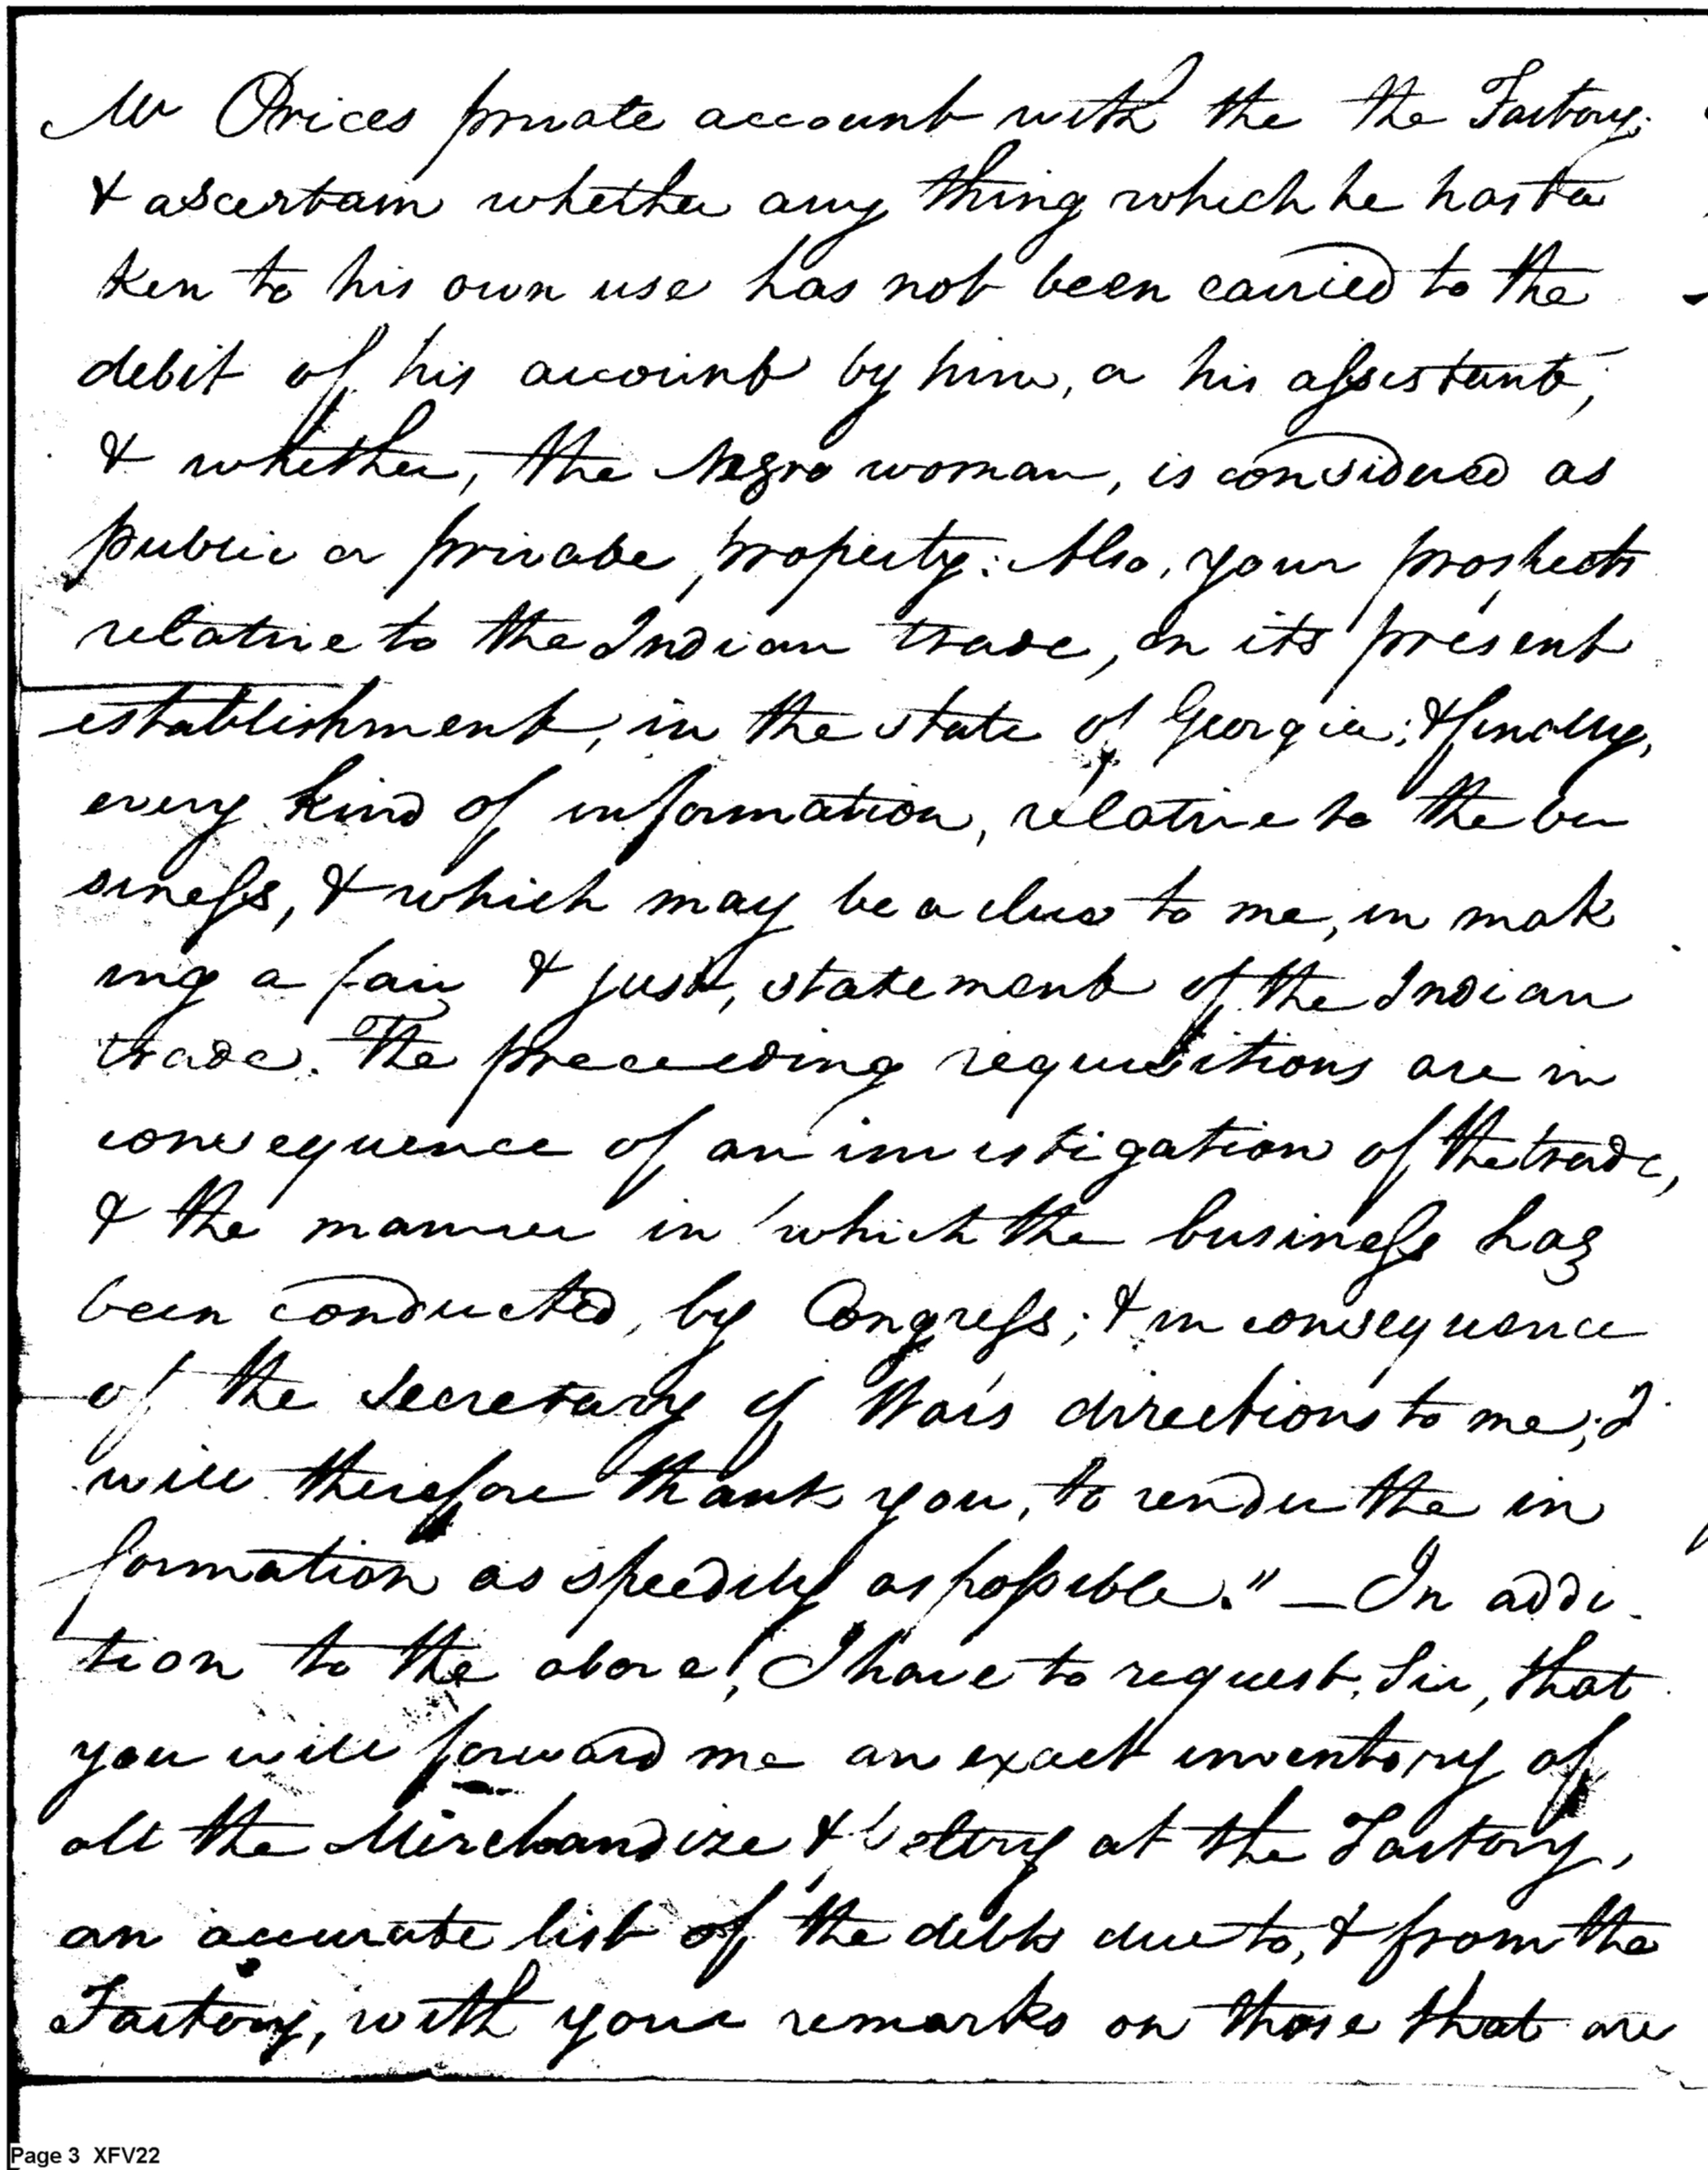 Mr Prices private account with the the Factory;
& ascertain whether any thing which he has ta
ken to his own use has not been carried to the
debit of his account by him, or his assistant;
& whether, the Negro woman, is considered as
public or private property: Also, your prospects
relative to the Indian trade, on its present
establishment, in the state of Georgia; & finally,
every kind of information, relative to the bu
siness, & which may be a clue to me, in mak
ing a fair & just, statement of the Indian
trade. The preceeding requisitions are in
consequence of an investigation of the trade,
& the manner in which the business has
been conducted, by Congress; & in consequence
of the Secretary of War's directions to me; I
will therefore thank you, to render the in
formation as speedily as possible." — In addi
tion to the above, I have to request, Sir, that
you will forward me an exact inventory of
all the Merchandize & Peltry at the Factory,
an accurate list of the debts due to, & from the
Factory, with your remarks on those that are
Page 3 XFV22